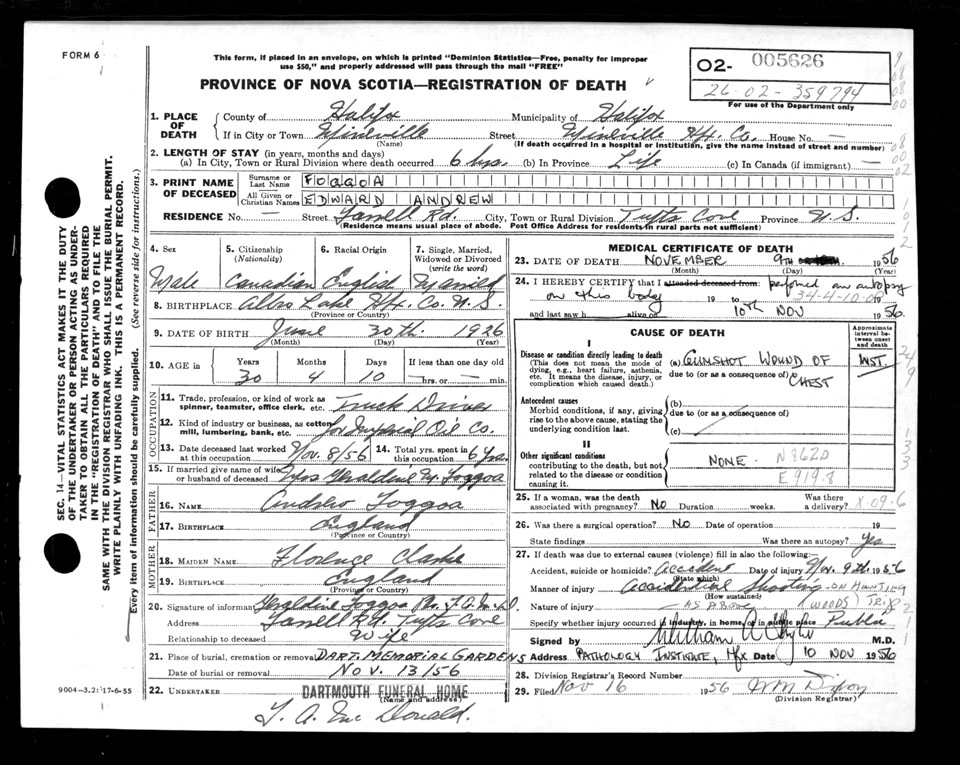 FORM 6
This form, if placed in an envelope, on which is printed "Dominion Statistics—Free, penalty for improper
use $50," and properly addressed will pass through the mail "FREE"
PROVINCE OF NOVA SCOTIA—REGISTRATION OF DEATH
O2- 005626
26-02-359794
For use of the Department only
SEC. 14—VITAL STATISTICS ACT MAKES IT THE DUTY
OF THE UNDERTAKER OR PERSON ACTING AS UNDER-
TAKER TO OBTAIN ALL THE PARTICULARS REQUIRED
IN THE "REGISTRATION OF DEATH" AND TO FILE THE
SAME WITH THE DIVISION REGISTRAR WHO SHALL ISSUE THE BURIAL PERMIT.
WRITE PLAINLY WITH UNFADING INK. THIS IS A PERMANENT RECORD.
Every item of information should be carefully supplied. (See reverse side for instructions.)
1. PLACE OF DEATH
County of Halifax Municipality of Halifax
If in City or Town Mineville Street Mineville Hfx. Co. House No. —
(Name) (If death occurred in a hospital or institution, give the name instead of street and number)
2. LENGTH OF STAY (in years, months and days)
(a) In City, Town or Rural Division where death occurred 6 hrs. (b) In Province Life (c) In Canada (if immigrant) —
3. PRINT NAME OF DECEASED
Surname or Last Name FOGGOA
All Given or Christian Names EDWARD ANDREW
RESIDENCE No. — Street Farrell Rd. City, Town or Rural Division Tufts Cove Province N.S.
(Residence means usual place of abode. Post Office Address for residents in rural parts not sufficient)
4. Sex 5. Citizenship (Nationality) 6. Racial Origin 7. Single, Married, Widowed or Divorced (write the word)
Male Canadian English Married
8. BIRTHPLACE Lake Hfx. Co. N.S.
(Province or Country)
9. DATE OF BIRTH June 30th. 1926
(Month) (Day) (Year)
10. AGE in Years Months Days If less than one day old
30 4 10 hrs. or — min.
OCCUPATION
11. Trade, profession, or kind of work as
spinner, teamster, office clerk, etc. Truck Driver
12. Kind of industry or business, as cotton
mill, lumbering, bank, etc. for Imperial Oil Co.
13. Date deceased last worked at this occupation Nov. 8/56 14. Total yrs. spent in this occupation 6 Yrs.
15. If married give name of wife or husband of deceased Mrs Geraldine M. Foggoa
FATHER
16. NAME Andrew Foggoa
17. BIRTHPLACE England
(Province or Country)
MOTHER
18. MAIDEN NAME Florence Clarke
19. BIRTHPLACE England
(Province or Country)
20. Signature of informant Geraldine Foggoa Per. T.A. McD.
Address Farrell Rd. Tufts Cove
Relationship to deceased Wife
21. Place of burial, cremation or removal DART. MEMORIAL GARDENS
Date of burial or removal Nov. 13/56
22. UNDERTAKER DARTMOUTH FUNERAL HOME
(Name and address)
T. A. Mc Donald.
9004-3.2: 17-6-55
MEDICAL CERTIFICATE OF DEATH
23. DATE OF DEATH NOVEMBER 9TH 1956
(Month) (Day) (Year)
24. I HEREBY CERTIFY that I attended deceased from: performed an autopsy
on this body 19 to 34-4-10-0
and last saw h alive on 10th NOV 1956.
CAUSE OF DEATH
Approximate interval between onset and death
I
Disease or condition directly leading to death
(This does not mean the mode of
dying, e.g., heart failure, asthenia,
etc. It means the disease, injury, or
complication which caused death.)
(a) GUNSHOT WOUND OF INST.
due to (or as a consequence of) CHEST
Antecedent causes
Morbid conditions, if any, giving
rise to the above cause, stating the
underlying condition last.
(b)
due to (or as a consequence of)
(c)
II
Other significant conditions
contributing to the death, but not
related to the disease or condition
causing it.
NONE. N 862D
E 919.8
25. If a woman, was the death associated with pregnancy? NO Duration weeks. Was there a delivery? X-09-6
26. Was there a surgical operation? NO Date of operation 19
State findings Was there an autopsy? Yes
27. If death was due to external causes (violence) fill in also the following:
Accident, suicide or homicide? Accident Date of injury Nov. 9th 1956
(State which)
Manner of injury Accidental Shooting ON HUNTING
(How sustained)
Nature of injury — AS ABOVE WOODS TRIP
Specify whether injury occurred in industry, in home, or in public place Public
Signed by William M.D.
Address PATHOLOGY INSTITUTE, Hfx Date 10 NOV 1956
28. Division Registrar's Record Number
29. Filed Nov 16 1956
(Division Registrar)